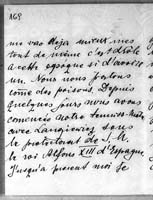 168
me vas déja mieux mes
tout de même c'est drôle
a cette époque si l'avais
un. Nous nous portons
come des poisons. Depuis
quelques jours nous avons
comencés notre tennis
avec Langiewicz sous
le protectorat de S. M.
le roi Alfons XIII d'Espagne
Jusqu'a present moi je